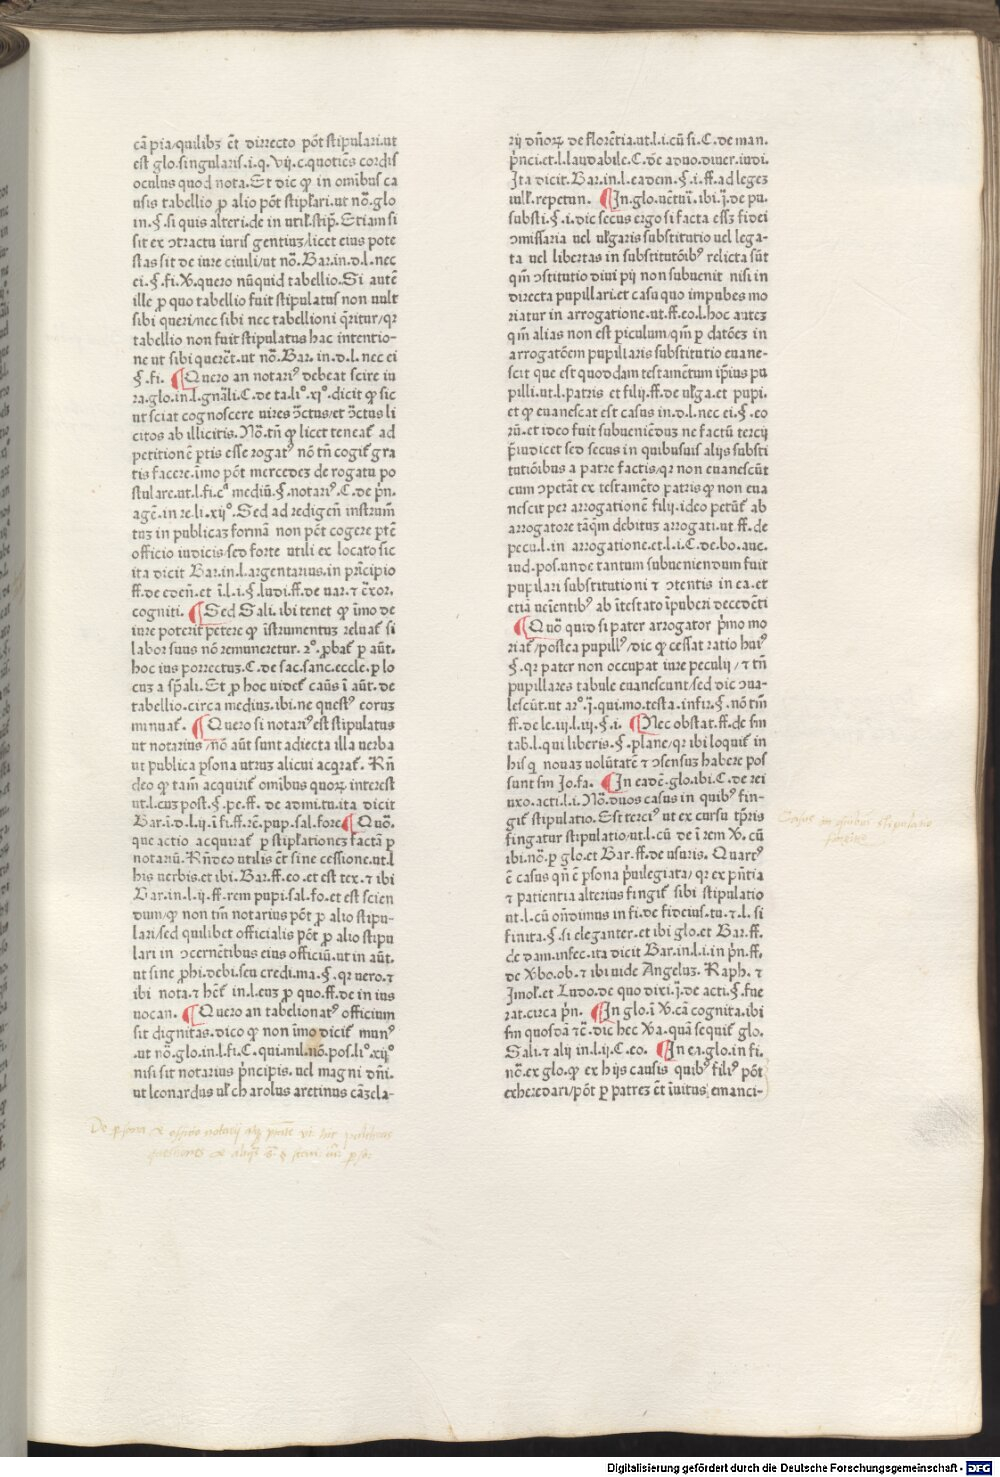 cã pia/quilibꝫ ẽt dirrecto põt stipulari.ut
est glo.singularis.i.q.Vij.c.quotiẽs cordis
oculus quod nota.Et dic ꝙ in omibus ca
usis tabellio ꝓ alio põt stip̃lari.ut nõ.glo
in.§.si quis alteri.de in util.stip̃.Etiam si
sit ex ɔtractu iuris gentiuꝫ/licet eius pote
stas sit de iure ciuili/ut nõ.Bar.in.d.l.nec
ei.§.fi.X.quero nũquid tabellio.Si autẽ
ille ꝓ quo tabellio fuit stipulatus non uult
sibi queri/nec sibi nec tabellioni q̃ritur/qꝛ
tabellio non fuit stipulatus hac intentio-
ne ut sibi querẽt.ut nõ.Bar.in.d.l.nec ei
§.fi. ¶Quero an notariꝰ debeat scire iu
ra.glo.in.l.gnãli.C.de ta.li°.xi°.dicit ꝙ sic
ut sciat cognoscere uires ɔ̃ctus/et ɔ̃ctus li
citos ab illicitis.Nõ.tñ ꝙ licet teneat̃ ad
petitionẽ ꝑtis esse rogatꝰ nõ tñ cogit̃ gra
tis facere.ĩmo põt mercedeꝫ de rogatu po
stulare.ut.l.fi.cᵃ mediũ.§.notariꝰ.C.de p̃n.
agẽ.in re.li.xij°.Sed ad redigeñ instrum̃
tuꝫ in publicaꝫ formã non põt cogere ꝑtẽ
officio iudicis sed forte utili ex locato sic
ita dicit Bar.in.l.argentarius.in prĩcipio
ff.de edeñ.et ĩ.l.i.§.ludi.ff.de uar.⁊ ẽxor.
cogniti. ¶Sed Sali.ibi tenet ꝙ ĩmo de
iure poterit petere ꝙ ĩstrumentuꝫ releuat̃ si
labor suus nõ remuneretur.2°.ꝓbat̃ ꝑ aut̃.
hoc ius porrectuꝫ.C.de sac.sanc.eccle.ꝑ lo
cuꝫ a sp̃ali.Et ꝑ hoc uidet̃ casus ĩ aut̃.de
tabellio.circa mediuꝫ.ibi.ne questꝰ eoruꝫ
minuat̃. ¶Quero si notariꝰ est stipulatus
ut notarius/nõ aũt sunt adiecta illa uerba
ut publica ꝑsona utruꝫ alicui acq̃rat̃. Rñ
deo ꝙ tam̃ acquirit̃ omibus quoꝝ interest
ut.l.cuꝫ post.§.pe.ff. de admi.tu.ita dicit
Bar.ĩ.d.l.ij.ĩ fi.ff.rẽ.pup.sal.fore ¶Quõ.
que actio acquirat̃ ꝑ stip̃lationeꝫ factã ꝑ
notariũ.Rñdeo utilis ẽt sine cessione.ut.l
his uerbis.et ibi.Bar.ff.eo.et est tex.⁊ ibi
Bar.in.l.ij.ff.rem pupi.sal.fo.et est scien
dum/ꝙ non tm̃ notarius põt ꝓ alio stipu-
lari/sed quilibet officialis põt ꝓ alio stipu
lari in ɔcernẽtibus eius officiũ.ut in aũt.
ut sine ꝓhi.debi.seu credi.ma.§.qꝛ uero.⁊
ibi nota.⁊ hẽt̃ in.l.euꝫ ꝓ quo.ff.de in ius
uocan. ¶Quero an tabelionatꝰ officium
sit dignitas.dico ꝙ non ĩmo dicit̃ munꝰ
.ut nõ.glo.in.l.fi.C.qui.mil.nõ.pos.li°.xij°
nisi sit notarius p̃ncipis.uel magni dñi.
ut leonardus uł charolus aretinus cãꝫela-
De ꝑsona et officio notarij
rij dñoꝝ de florẽtia.ut.l.i.cũ si.C.de man.
p̃nci.et.l.laudabile.C.de aduo.diuer.iudi.
Ita dicit.Bar.in.l.eadem.§.i.ff.ad legeꝫ
iul̃.repetun. ¶In.glo.uẽtuĩ.ibi.ij̃.de pu.
substi.§.i.dic secus ergo si facta essꝫ fidei
ɔmissaria uel ul̃garis substitutio uel lega-
ta uel libertas in substitutõibꝰ relicta sũt
qm̃ ɔstitutio diui pij non subuenit nisi in
directa pupillari.et casu quo impubes mo
riatur in arrogatione.ut.ff.eo.l.hoc auteꝫ
qm̃ alias non est piculum/qm̃ ꝑ datõeꝫ in
arrogatõem pupillaris substitutio euane-
scit que est quoddam testamẽtum ip̃ius pu
pilli.ut.l.patris et filij.ff.de ul̃ga.et pupi.
et ꝙ euanescat est casus in.d.l.nec ei.§.eo
rũ.et ideo fuit subueniẽduꝫ ne factũ tercij
p̃iudicet sed secus in quibusuis alijs substi
tutiõibus a patre factis/qꝛ non euanescũt
cum ɔpetãt ex testamẽto patris ꝙ non eua
nescit per arrogationẽ filij.ideo petũt̃ ab
arrogatore tãq̃m debituꝫ arrogati.ut ff.de
pecu.l.in arrogatione.et.l.i.C.de.bo.auc.
iud.pos.unde tantum subueniendum fuit
pupilari substitutioni ⁊ ɔtentis in ea.et
etiã uẽientibꝰ ab ĩtestato ĩpuberi decedẽti
¶Quõ quid si pater arrogator p̃mo mo
riat̃/postea pupillꝰ/dic ꝙ cessat ratio huiꝰ
§.qꝛ pater non occupat iure peculij/⁊ tñ
pupillares tabule euanescunt/sed dic ɔua-
lescũt.ut ar°.ij̃.qui.mo.testa.infir.§.nõ tm̃
ff.de le.iij.l.iij.§.i. ¶Nec obstat.ff.de sm
tab.l.qui liberis.§.plane/qꝛ ibi loquit̃ in
his q̃ nouaꝫ uolũtatẽ ⁊ ɔsensuꝫ habere pos
sunt sm̃ Jo.fa. ¶In eadẽ.glo.ibi.C.de rei
uxo.acti.l.i.Nõ.duos casus in quibꝰ fin-
git̃ stipulatio.Est terciꝰ ut ex cursu tp̃ris
fingatur stipulatio/ut.l.cũ de ĩ rem X.cũ
ibi.nõ.ꝑ glo.et Bar.ff.de usuris. Quartꝰ
ẽ casus qñ ẽ ꝑsona p̃uilegiata/qꝛ ex pñtia
⁊ patientia alterius fingit̃ sibi stipulatio
ut.l.cũ oñdimus in fi.de fideius.tu.⁊.l.si
finita.§.si eleganter.et ibi glo.et Bar.ff.
de dam.infec.ita dicit Bar.in.l.i.in p̃n.ff.
de X̃bo.ob.⁊ ibi uide Angeluꝫ. Raph.⁊
Imol̃.et Ludo.de quo dixi.ij̃.de acti.§.fue
rat.circa p̃n. ¶In glo.ĩ X.cã cognita.ibi
sm quosdã ⁊c̃.dic hec X̃a.quã sequit̃ glo.
Sali.⁊ alij in.l.ij.C.eo. ¶In ea.glo.in fi.
nõ.ex glo.ꝙ ex hijs causis quibꝰ filiꝰ põt
exheredari/põt ꝑ patreꝫ ẽt ĩuitus emanci-